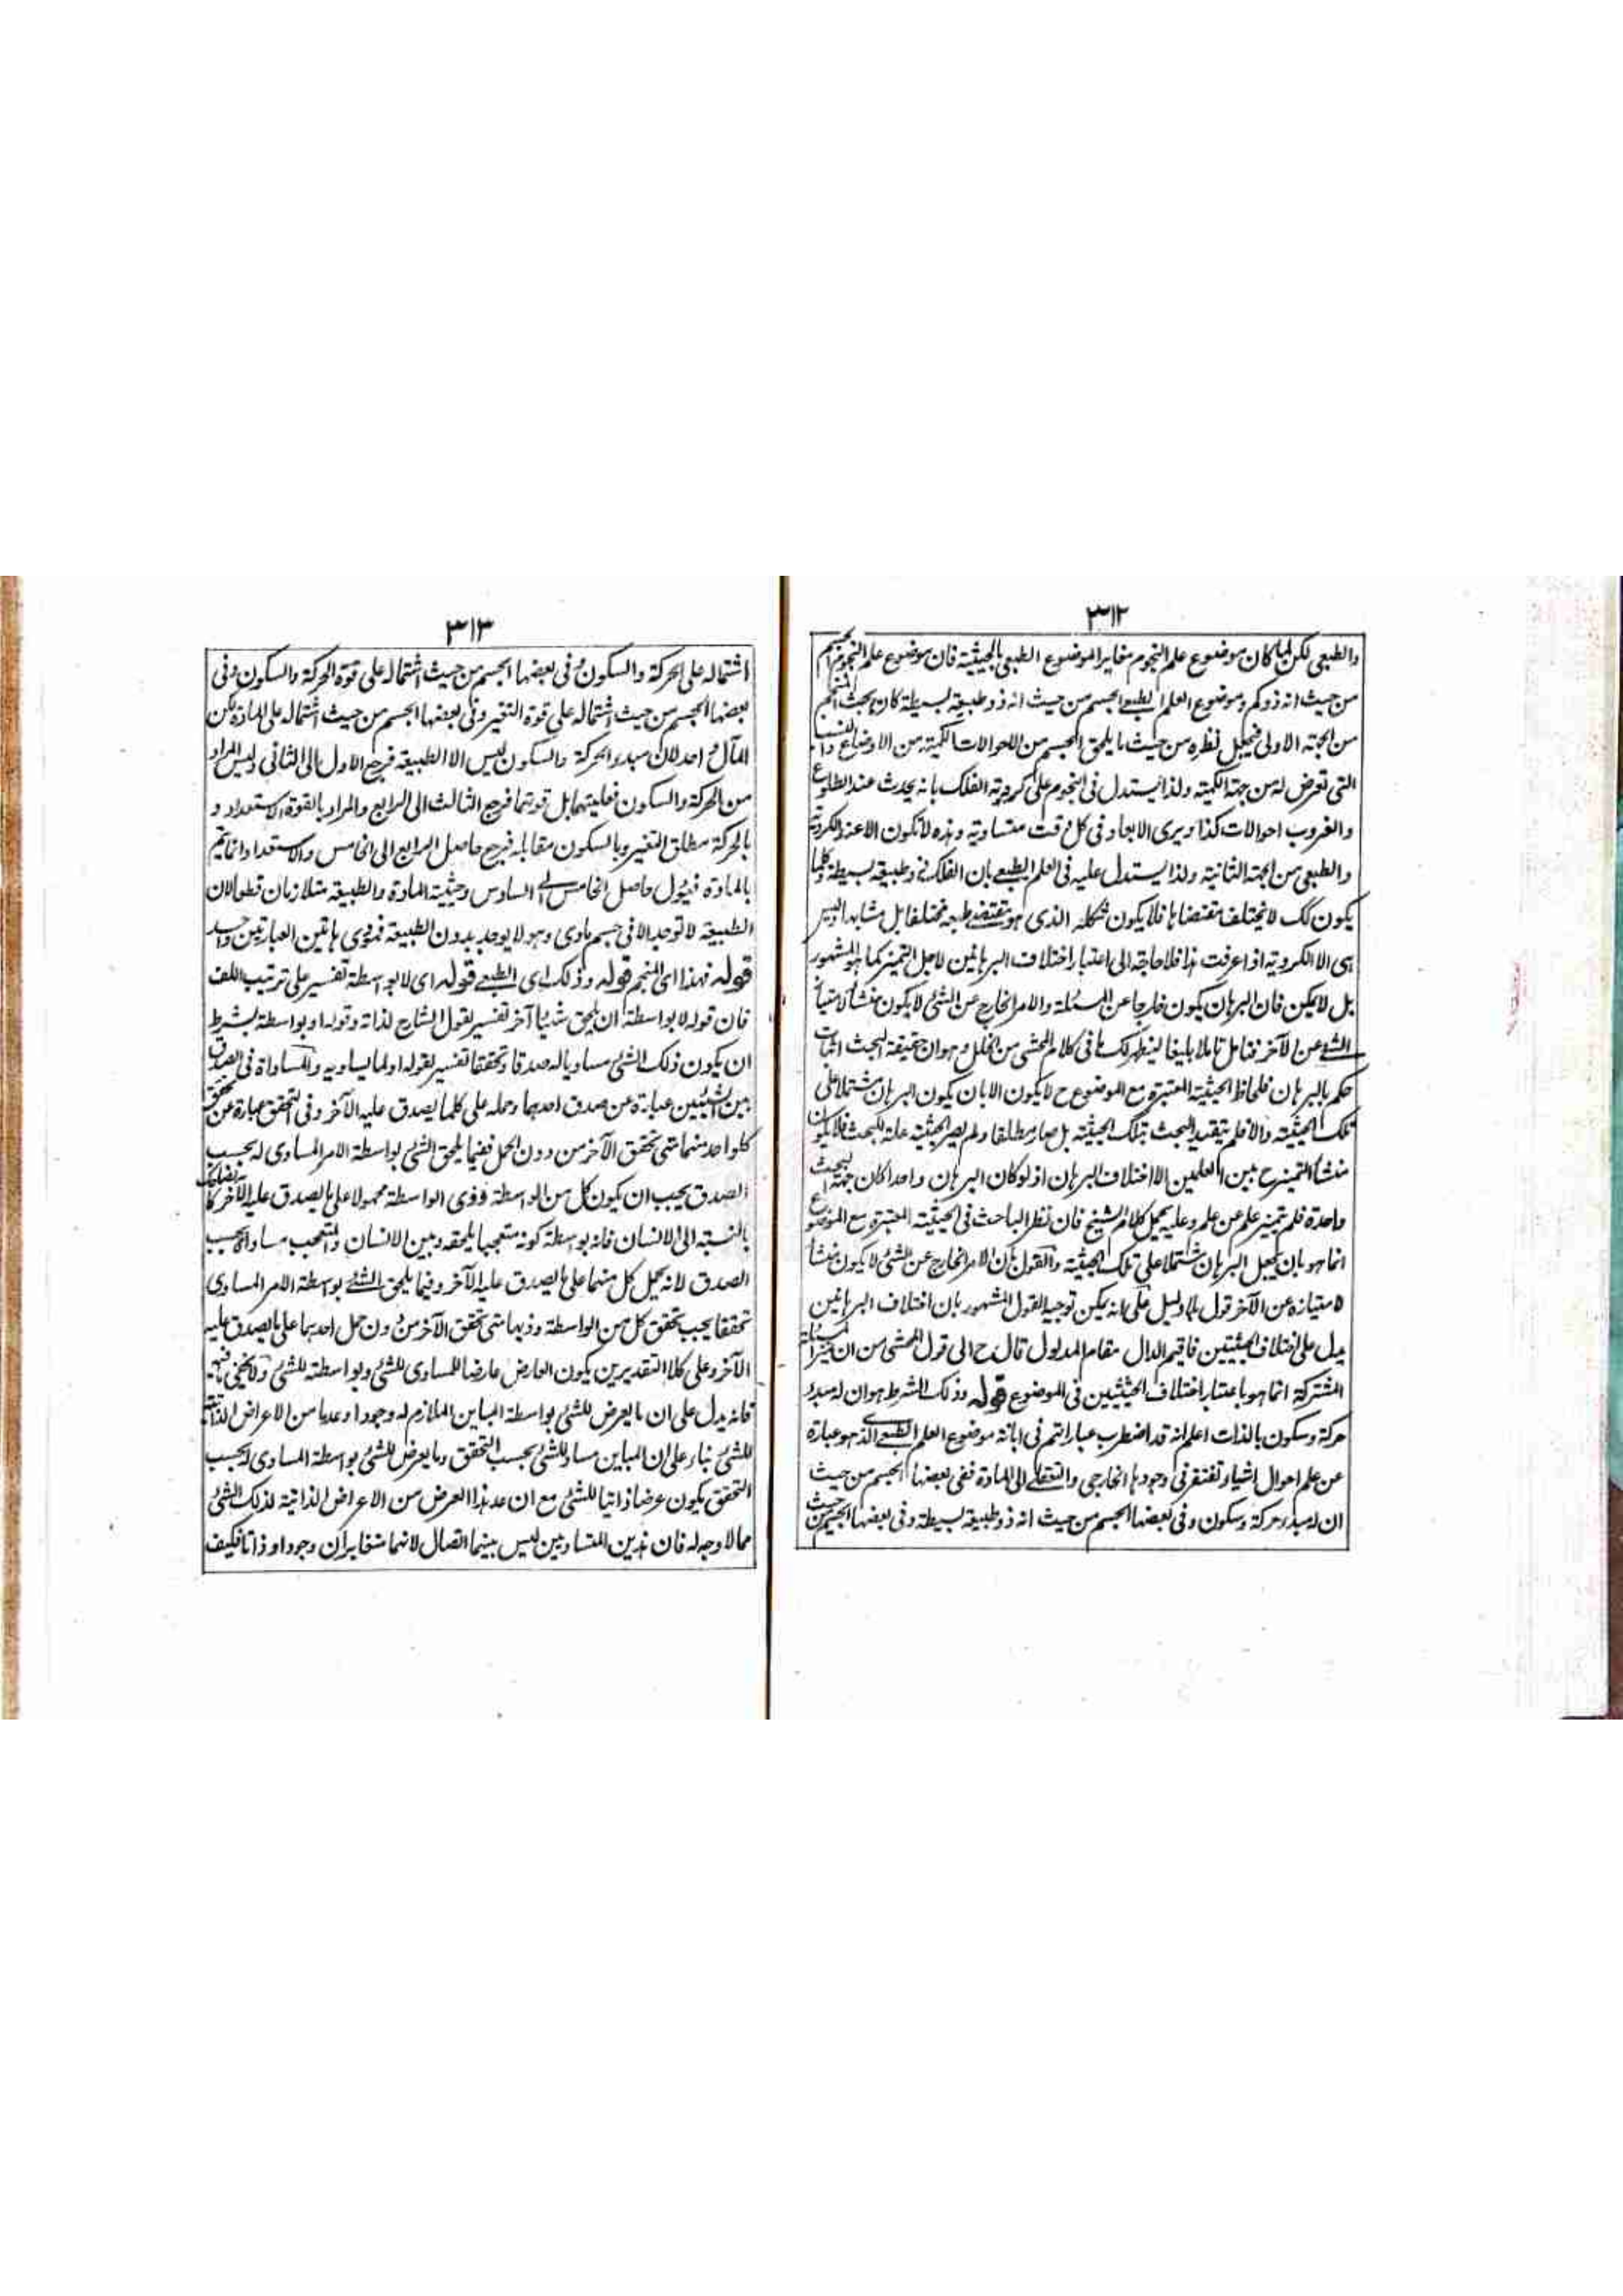 ٣١٢
والطبعى لكن لما كان موضوع علم النجوم مغايرا لموضوع الطبعى بالحيثية فان موضوع علم النجوم الجسم
من حيث انه ذو كم وموضوع العلم الطبعے الجسم من حيث انه ذو طبيعة بسيطة كان بحث المنجم
من الجهة الاولى فيجعل نظره من حيث ما يلحق الجسم من الاحوالات الكمية من الاوضاع والنسب
التى تعرض له من جهة الكمية ولذا يستدل فى النجوم على كروية الفلك بانه يحدث عند الطلوع
والغروب احوالات كذا ويرى الابعاد فى كل وقت متساوية وهذه لا تكون الا عند الكروية
والطبعى من الجهة الثانية ولذا يستدل عليه فى العلم الطبعے بان الفلك ذو طبيعة بسيطة وكلما
يكون كك لا يختلف مقتضاها فلا يكون شكله الذى هو مقتضے طبعه مختلفا بل مشابها وليس
هى الا الكروية اذا عرفت هذا فلا حاجة الى اعتبار اختلاف البرهانين لاجل التميز كما هو المشهور
بل لا يمكن فان البرهان يكون خارجا عن المسئلة والامر الخارج عن الشئ لا يكون منشأ لامتياز
الشئ عن الآخر فتامل تاملا بليغا ليظهر لك ما فى كلام المحشى من الخلل وهو ان حقيقة البحث اثبات
حكم بالبرهان فلحاظ الحيثية المعتبرة مع الموضوع ح لا يكون الا بان يكون البرهان مشتملا على
تلك الحيثية والا فلم يتقيد البحث بتلك الحيثية بل صار مطلقا ولم يصر الحيثية علة للبحث فلا يكون
منشأ التميز ح بين العلمين الا اختلاف البرهان اذ لو كان البرهان واحدا كان جهة البحث
واحدة فلم يتميز علم عن علم وعليه يحمل كلام الشيخ فان نظر الباحث فى الحيثية المعتبرة مع الموضوع
انما هو بان يجعل البرهان مشتملا على تلك الحيثية والقول بان الامر الخارج عن الشئ لا يكون منشأ
لامتيازه عن الآخر قول بلا دليل على انه يمكن توجيه القول المشهور بان اختلاف البرهانين
يدل على اختلاف الحيثيتين فاقيم الدال مقام المدلول قال ح الى قول المحشى من ان تميز المسئلة
المشتركة انما هو باعتبار اختلاف الحيثيتين فى الموضوع قوله وذلك الشرط هو ان له مبدء
حركة وسكون بالذات اعلم انه قد اضطرب عباراتهم فى ابانة موضوع العلم الطبعے الذى هو عبارة
عن علم احوال اشياء تفتقر فى وجودها الخارجى والتعقلے الى المادة ففى بعضها الجسم من حيث
ان له مبدء حركة وسكون وفى بعضها الجسم من حيث انه ذو طبيعة بسيطة وفى بعضها الجسم من حيث
٣١٣
اشتماله على الحركة والسكون وفى بعضها الجسم من حيث اشتماله على قوة الحركة والسكون وفى
بعضها الجسم من حيث اشتماله على قوة التغير وفى بعضها الجسم من حيث اشتماله على المادة لكن
المآل واحد لان مبدء الحركة والسكون ليس الا الطبيعة فرجع الاول الى الثانى وليس المراد
من الحركة والسكون فعليتهما بل قوتهما فرجع الثالث الى الرابع والمراد بالقوة الاستعداد و
بالحركة مطلق التغير وبالسكون مقابله فرجع حاصل الرابع الى الخامس والاستعداد انما يتم
بالمادة فيؤل حاصل الخامس الى السادس وحيثية المادة والطبيعة متلازمان قطعا لان
الطبيعة لا توجد الا فى جسم مادى وهو لا يوجد بدون الطبيعة فمودى هاتين العبارتين واحد
قوله فهذا اى المنجم قوله وذلك اى الطبعے قوله اى لا بواسطة تفسير على ترتيب اللف
فان قوله لا بواسطة ان يلحق شيئا آخر تفسير لقول الشارح لذاته وقوله او بواسطة بشرط
ان يكون ذلك الشئ مساويا له صدقا وتحققا تفسير لقوله او لما يساويه والمساواة فى الصدق
بين الشيئين عبارة عن صدق احدهما وحمله على كلما يصدق عليه الآخر وفى التحقق عبارة عن تحقق
كل واحد منهما متى تحقق الآخر من دون الحمل ففيما يلحق الشئ بواسطة الامر المساوى له بحسب
الصدق يجب ان يكون كل من الواسطة وذى الواسطة محمولا على ما يصدق عليه الآخر كالضاحك
بالنسبة الى الانسان فانه بواسطة كونه متعجبا يلحقه وبين الانسان والمتعجب مساواة بحسب
الصدق لانه يحمل كل منهما على ما يصدق عليه الآخر وفيما يلحق الشئ بواسطة الامر المساوى
تحققا يجب تحقق كل من الواسطة وذيها متى تحقق الآخر من دون حمل احدهما على ما يصدق عليه
الآخر وعلى كلا التقديرين يكون العارض عارضا للمساوى للشئ وبواسطة للشئ ولا يخفى ما فيه
فانه يدل على ان ما يعرض للشئ بواسطة المباين الملازم له وجودا وعدما من الاعراض الذاتية
للشئ بناء على ان المباين مساو للشئ بحسب التحقق وما يعرض للشئ بواسطة المساوى له بحسب
التحقق يكون عرضا ذاتيا للشئ مع ان عد هذا العرض من الاعراض الذاتية لذلك الشئ
مما لا وجه له فان هذين المتساويين ليس بينهما اتصال لانهما متغايران وجودا وذاتا فكيف